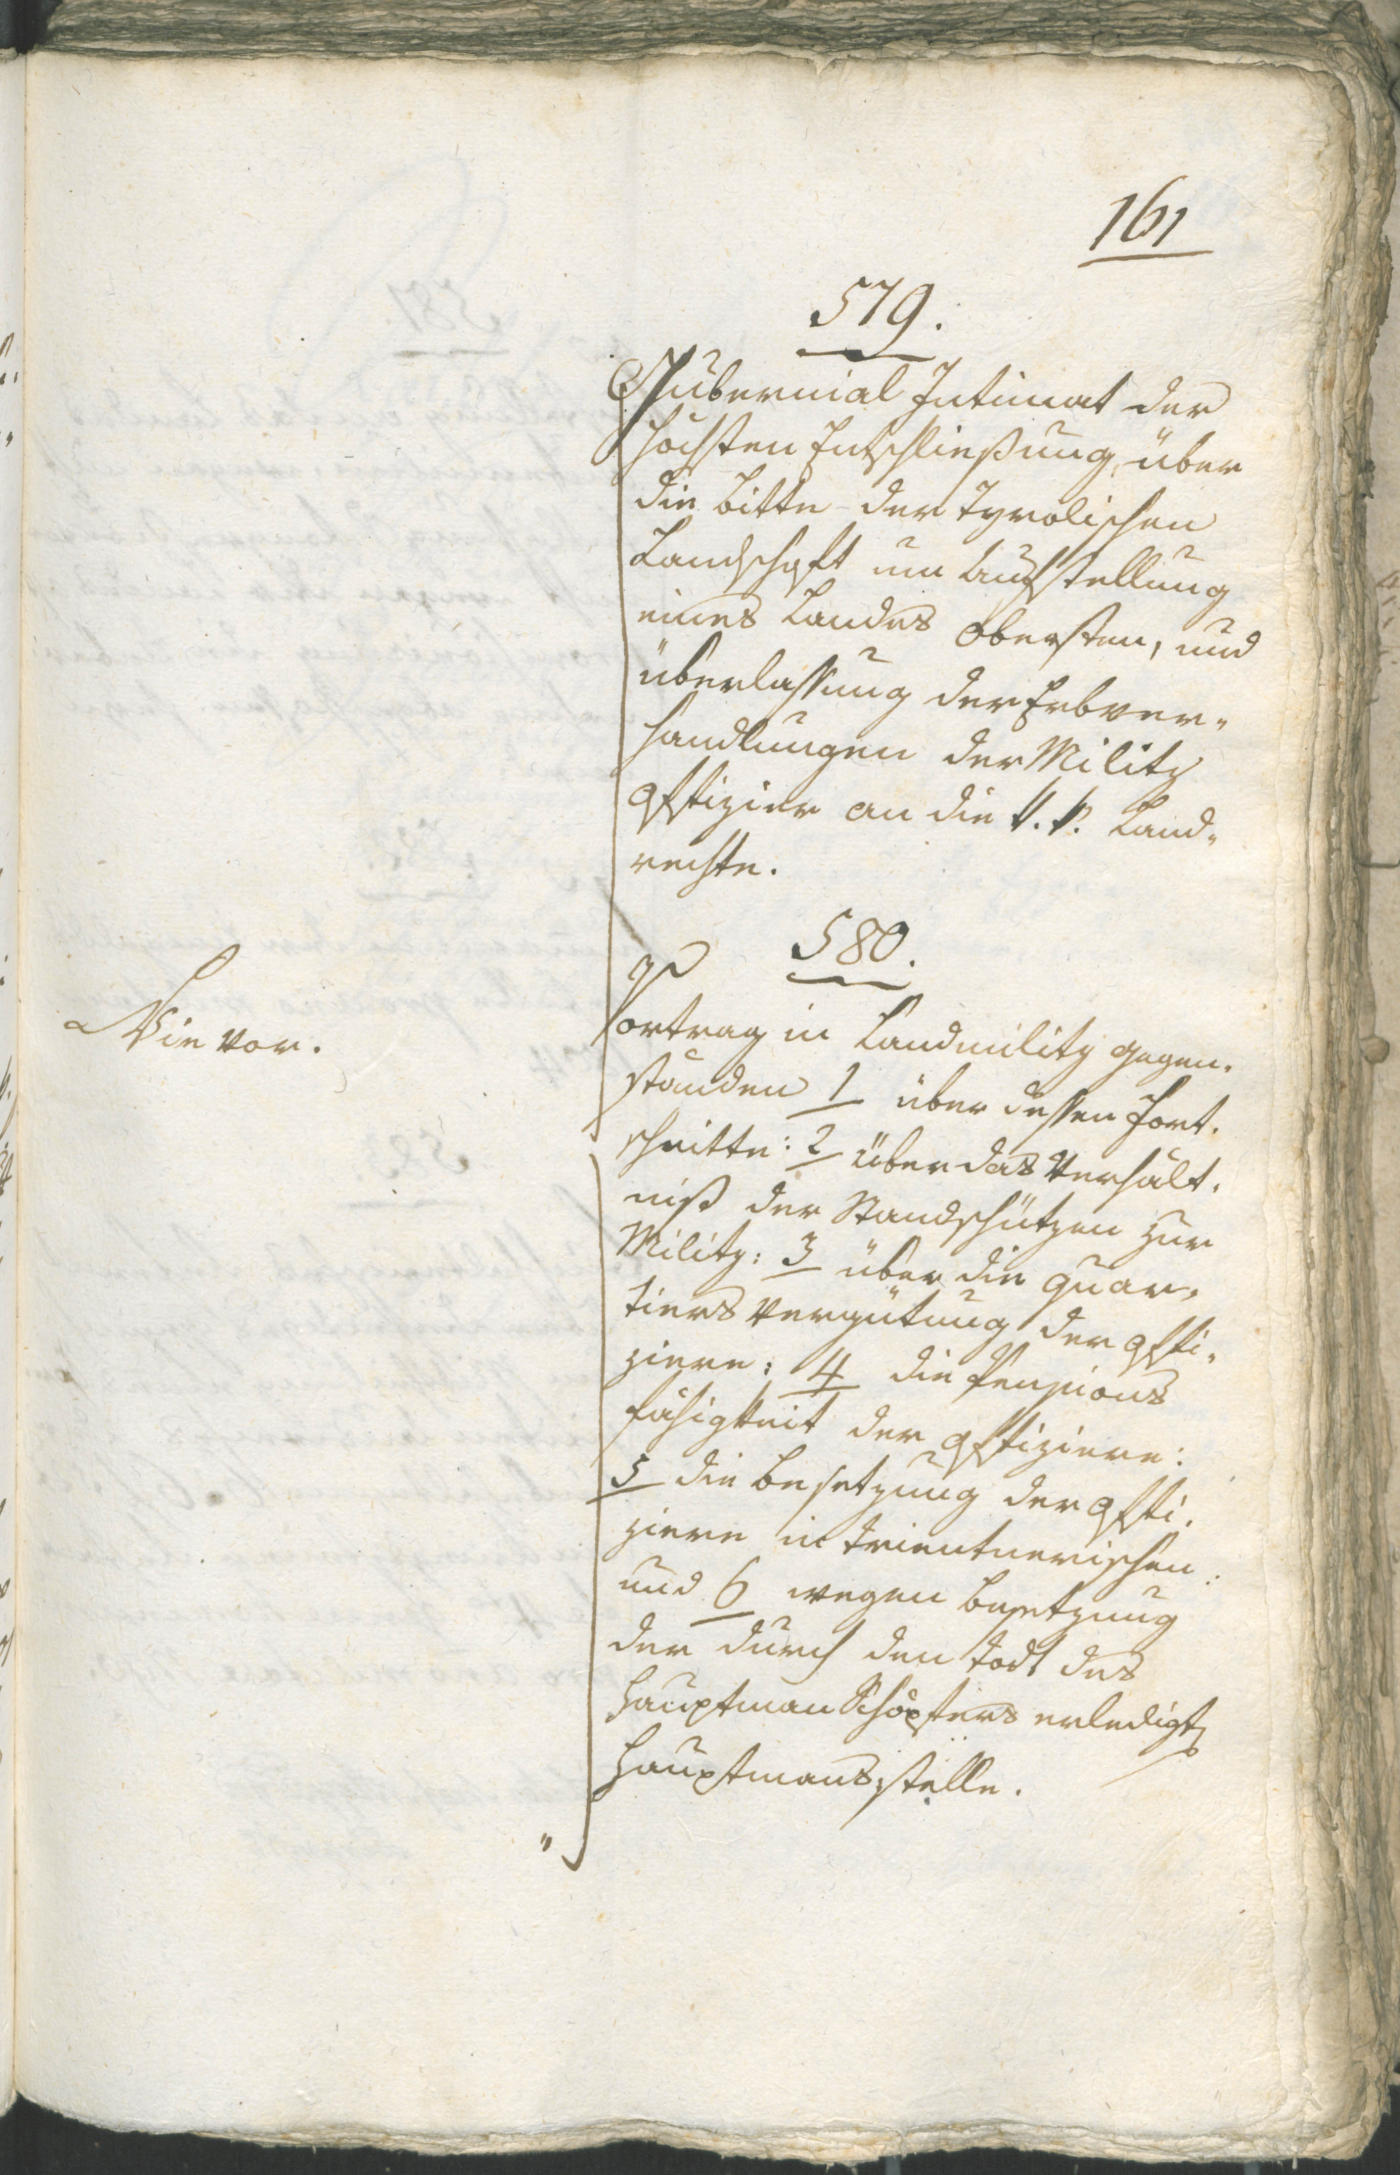 161
579.
Gubernial Intimat der
höchsten Entschließung, über
die Bitte der Tyrolischen
Landschaft um Aufstellung
eines Landes Obersten, und
überlassung der Erbver-
handlungen der Militz
Offizier an die k. k. Land-
rechte.
580.
Wie vor.
Vortrag in Landmilitz gegen-
ständen 1 über dessen Fort-
schritte: 2 über das Verhält-
niß der Standschützen zur
Militz: 3 über die Quar-
tiers Vergütung der Offi-
ziere: 4 die Pensions
fähigkeit der Offiziere:
5 die Besetzung der Offi-
ziere in Trientnerischen:
und 6 wegen Besetzung
der durch den Todt des
Hauptman Schöpfers erledigt
Hauptmansstelle.